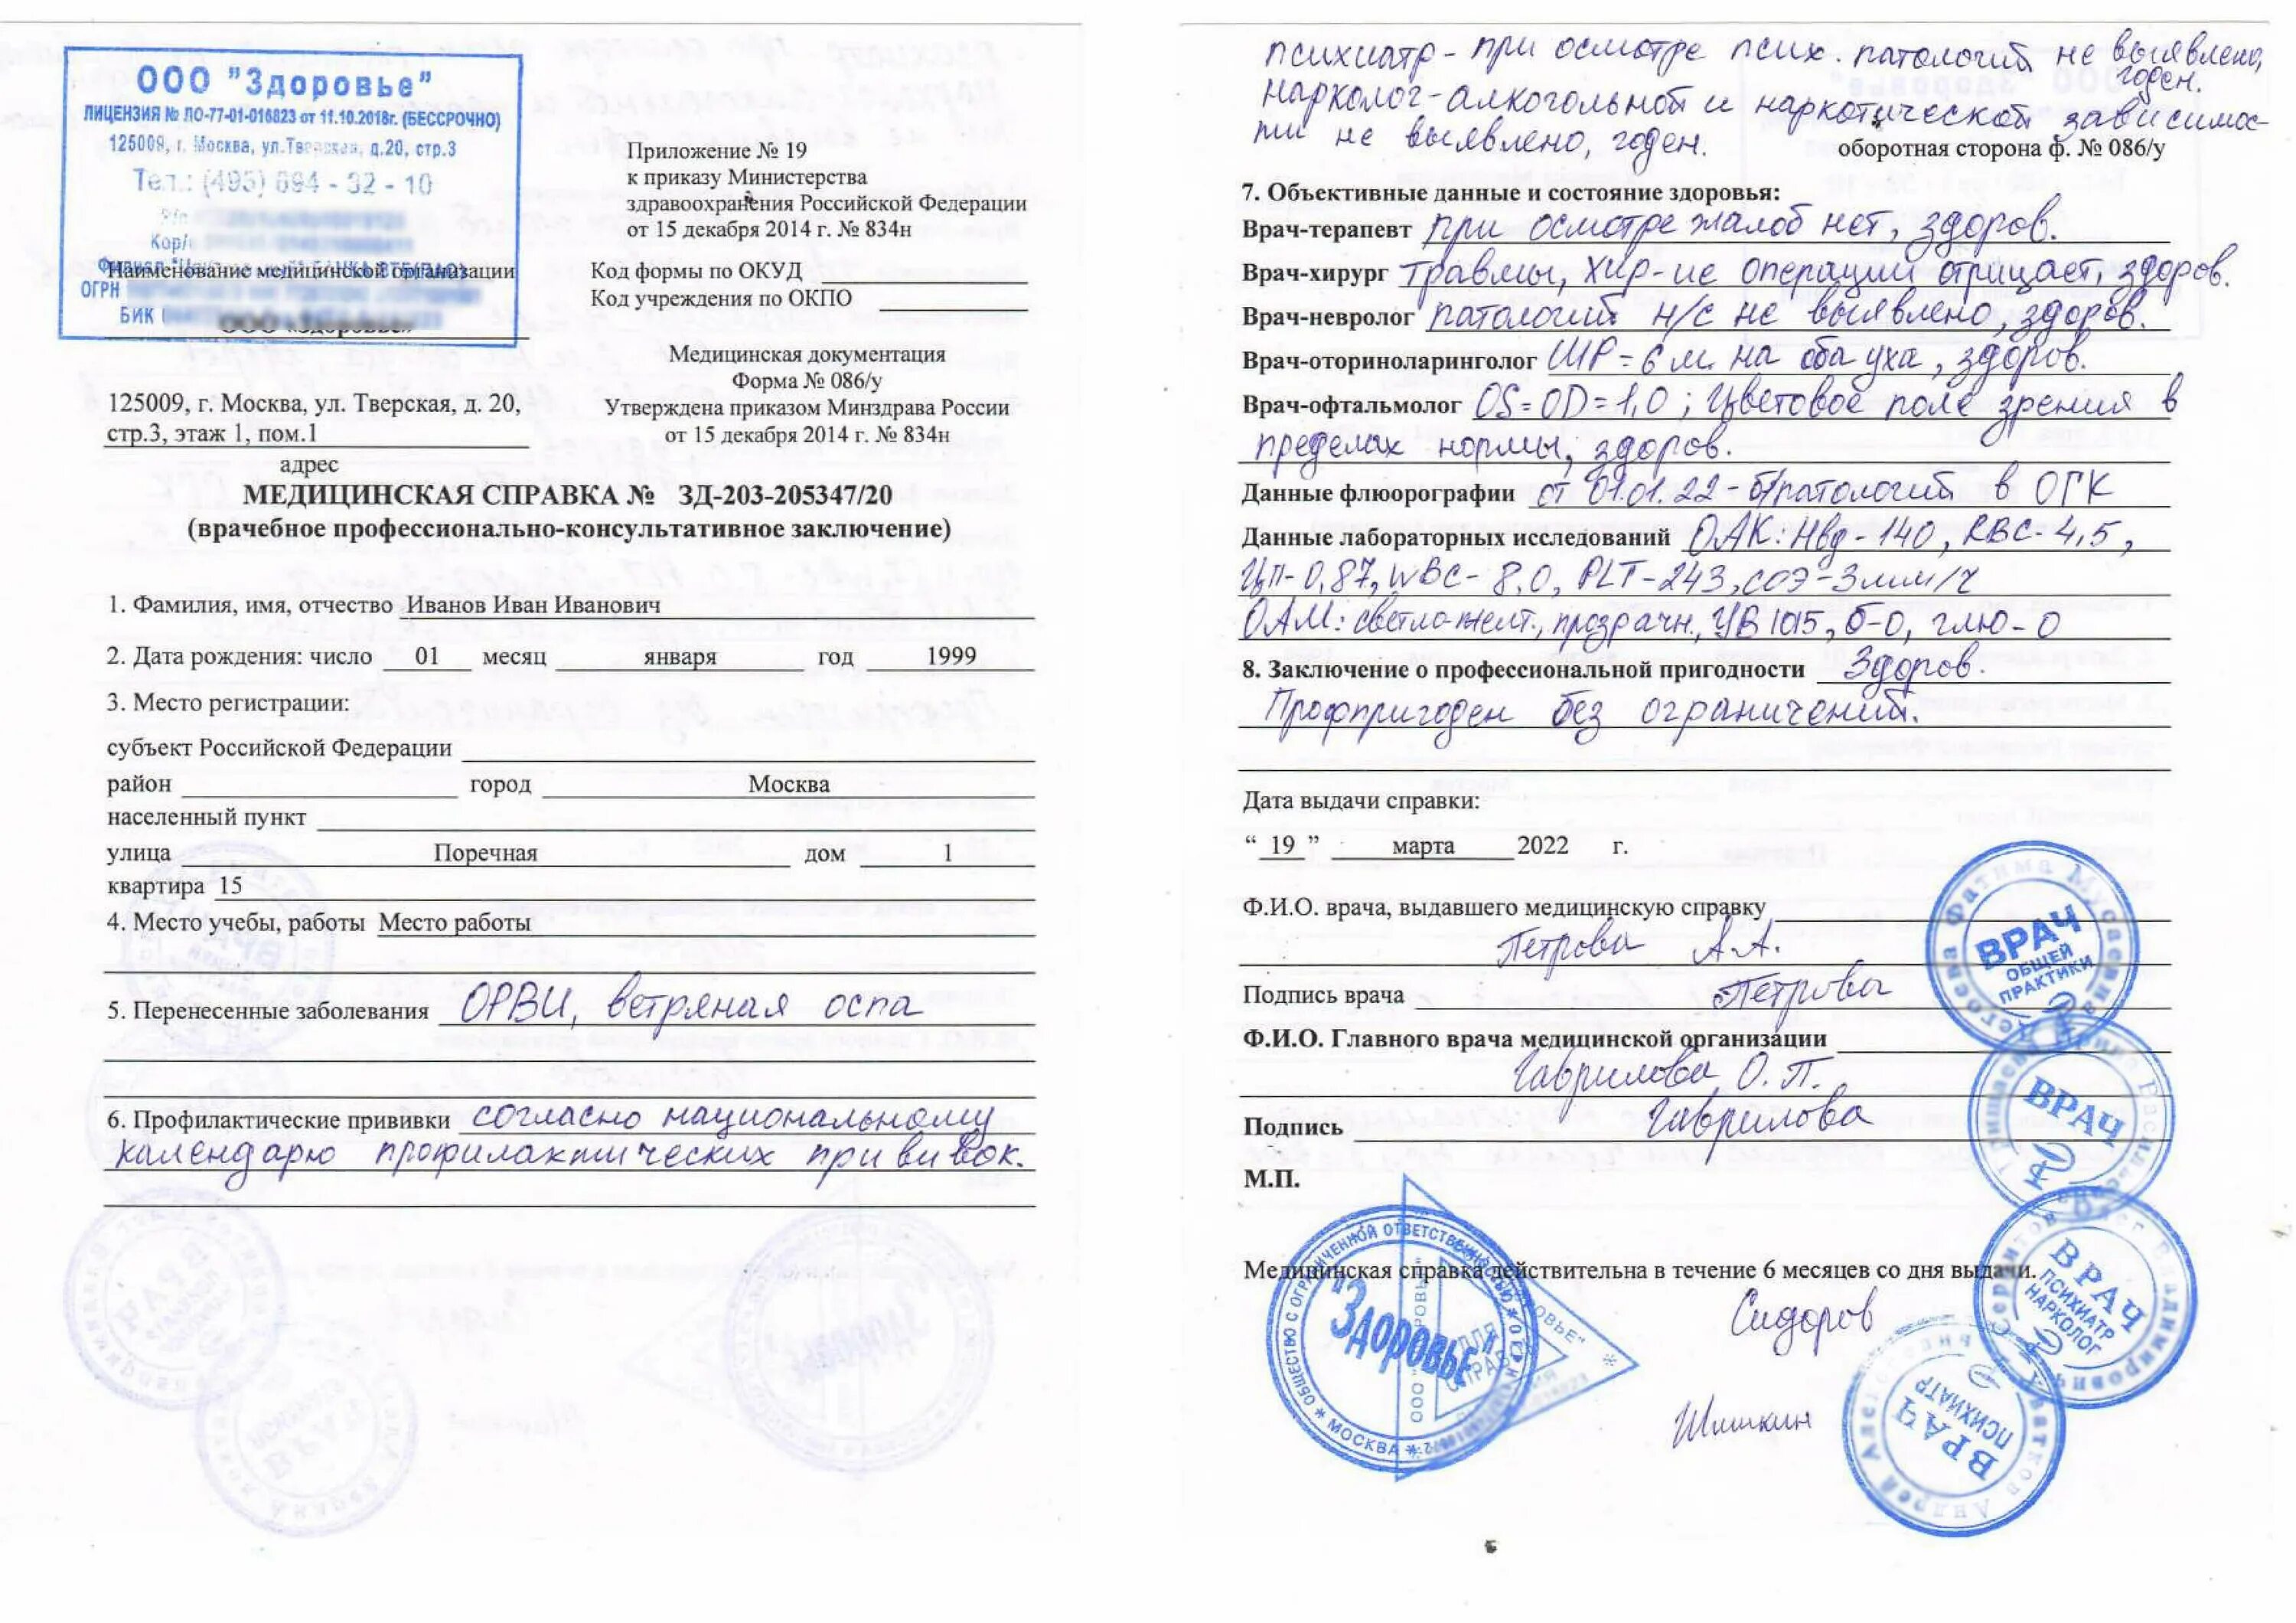 ООО "Здоровье"
ЛИЦЕНЗИЯ № ЛО-77-01-016823 от 11.10.2018г. (БЕССРОЧНО)
125009, г. Москва, ул.Тверская, д.20, стр.3
Тел.: (495) 694 - 32 - 10
Кор/
Наименование медицинской организации
ОГРН
БИК
ООО «Здоровье»
Приложение № 19
к приказу Министерства
здравоохранения Российской Федерации
от 15 декабря 2014 г. № 834н
Код формы по ОКУД
Код учреждения по ОКПО
Медицинская документация
Форма № 086/у
Утверждена приказом Минздрава России
от 15 декабря 2014 г. № 834н
125009, г. Москва, ул. Тверская, д. 20,
стр.3, этаж 1, пом.1
адрес
МЕДИЦИНСКАЯ СПРАВКА № ЗД-203-205347/20
(врачебное профессионально-консультативное заключение)
1. Фамилия, имя, отчество Иванов Иван Иванович
2. Дата рождения: число 01 месяц января год 1999
3. Место регистрации:
субъект Российской Федерации
район город Москва
населенный пункт
улица Поречная дом 1
квартира 15
4. Место учебы, работы Место работы
5. Перенесенные заболевания ОРВИ, ветряная оспа
6. Профилактические прививки согласно национальному
календарю профилактических прививок.
психиатр - при осмотре псих. патологий не выявлено,
годен.
нарколог - алкогольной и наркотической зависимос-
ти не выявлено, годен.
оборотная сторона ф. № 086/у
7. Объективные данные и состояние здоровья:
Врач-терапевт при осмотре жалоб нет, здоров.
Врач-хирург травмы, хир-ие операции отрицает, здоров.
Врач-невролог патологий н/с не выявлено, здоров.
Врач-оториноларинголог ШР = 6 м. на оба уха, здоров.
Врач-офтальмолог OS = OD = 1,0 ; Цветовое поле зрения в
пределах нормы, здоров.
Данные флюорографии от 01.01.22 - б/патологий в ОГК
Данные лабораторных исследований ОАК: Hbg - 140, RBC - 4,5,
ЦП - 0,87, WBC - 8,0, PLT - 243, СОЭ - 3 мм/ч
ОАМ: светло-желт., прозрачн., УВ 1015, б-0, глю - 0
8. Заключение о профессиональной пригодности Здоров.
Профпригоден без ограничений.
Дата выдачи справки:
“ 19 ” марта 2022 г.
Ф.И.О. врача, выдавшего медицинскую справку
Петрова А.А.
Подпись врача Петрова
Ф.И.О. Главного врача медицинской организации
Гаврилова О.П.
Подпись Гаврилова
М.П.
Медицинская справка действительна в течение 6 месяцев со дня выдачи.
Сидоров
Шишкин
ОБЩЕСТВО С ОГРАНИЧЕННОЙ ОТВЕТСТВЕННОСТЬЮ
"ЗДОРОВЬЕ"
МОСКВА
ДЛЯ
СПРАВОК
Фатима Мусаевна
ВРАЧ
ОБЩЕЙ
ПРАКТИКИ
ВРАЧ
ВРАЧ
ПСИХИАТР
НАРКОЛОГ
Владимирович
ВРАЧ
ПСИХИАТР
Андрей